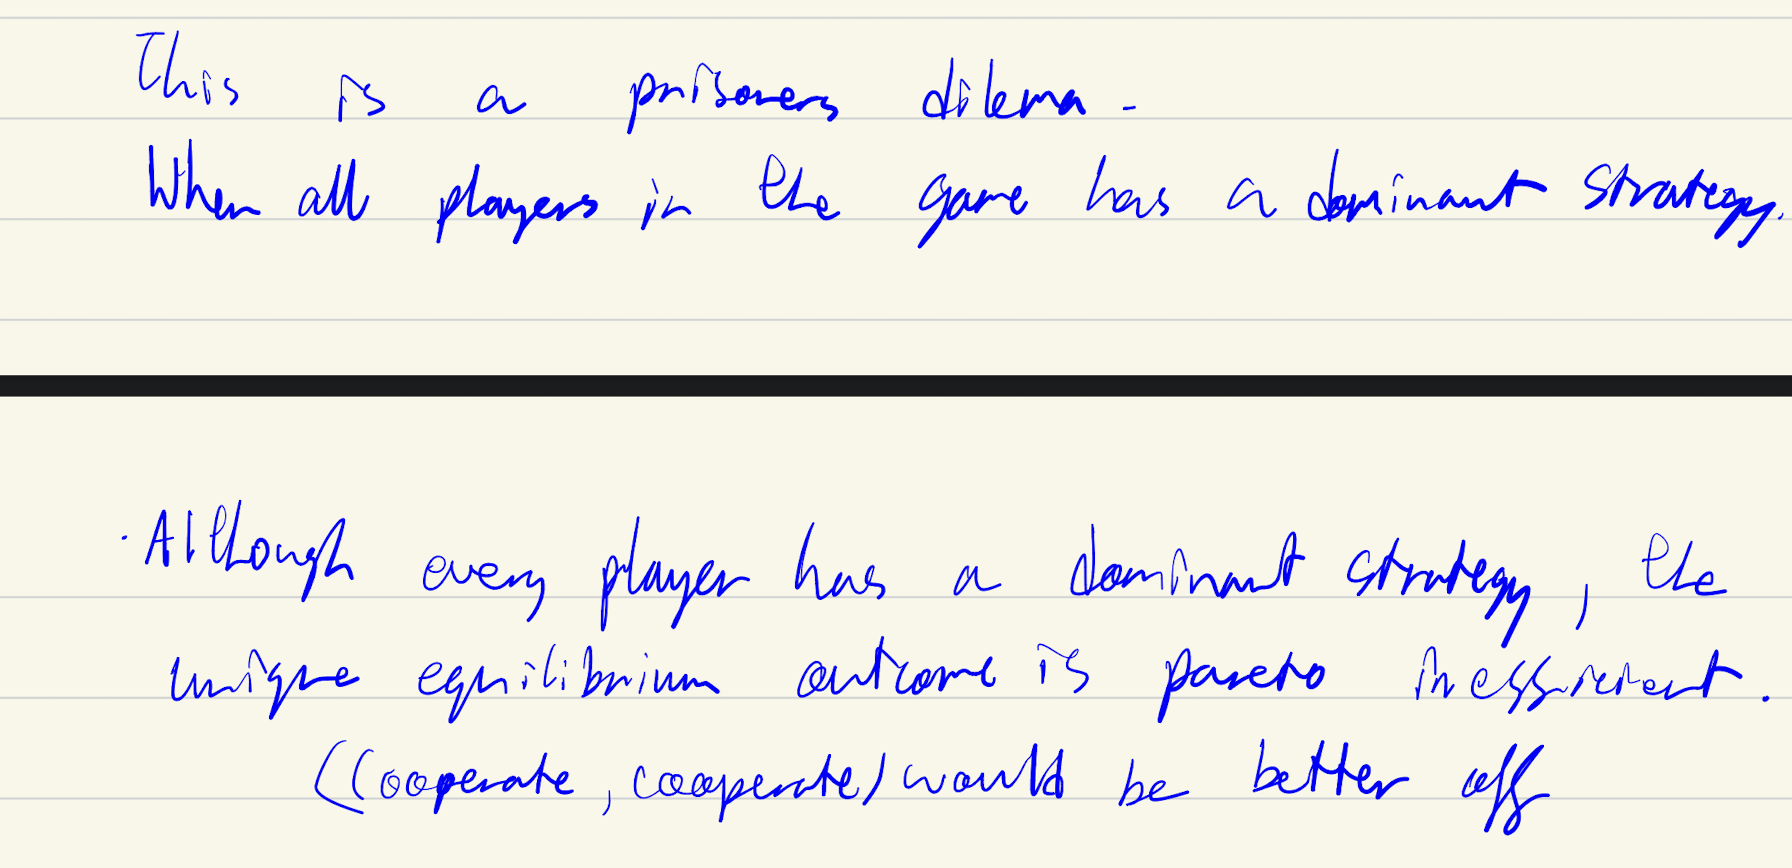 This is a prisoners dilema.
When all players in the game has a dominant strategy.
· Although every player has a dominant strategy, the
unique equilibrium outcome is pareto inefficient.
(Cooperate, cooperate) would be better off